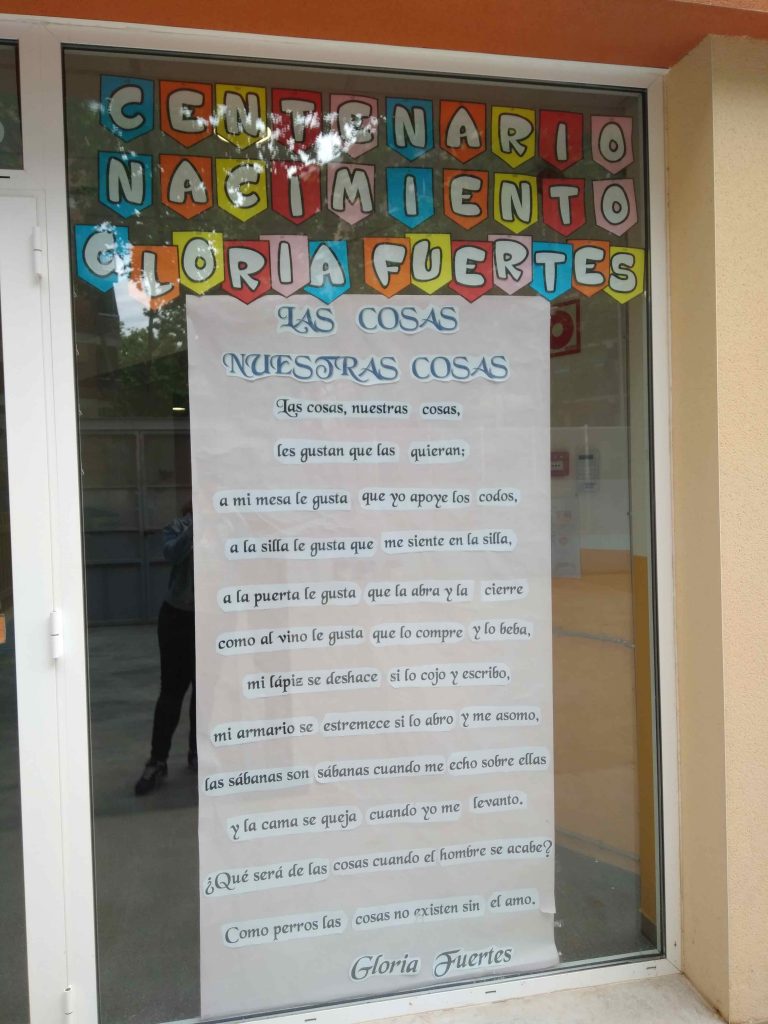 CENTENARIO
NACIMIENTO
GLORIA FUERTES
LAS COSAS
NUESTRAS COSAS
Las cosas, nuestras cosas,
les gustan que las quieran;
a mi mesa le gusta que yo apoye los codos,
a la silla le gusta que me siente en la silla,
a la puerta le gusta que la abra y la cierre
como al vino le gusta que lo compre y lo beba,
mi lápiz se deshace si lo cojo y escribo,
mi armario se estremece si lo abro y me asomo,
las sábanas son sábanas cuando me echo sobre ellas
y la cama se queja cuando yo me levanto.
¿Qué será de las cosas cuando el hombre se acabe?
Como perros las cosas no existen sin el amo.
Gloria Fuertes